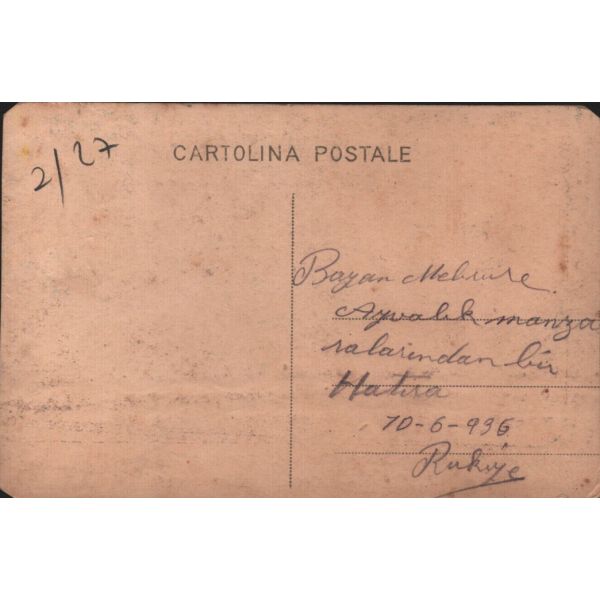 2/27
CARTOLINA POSTALE
Bayan Mebrure
Ayvalık manza
ralarından bir
Hatıra
10-6-936
Rukiye